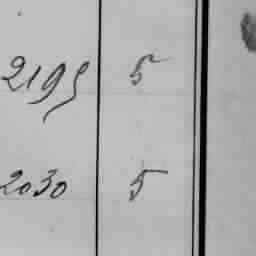 2195 5
2030 5